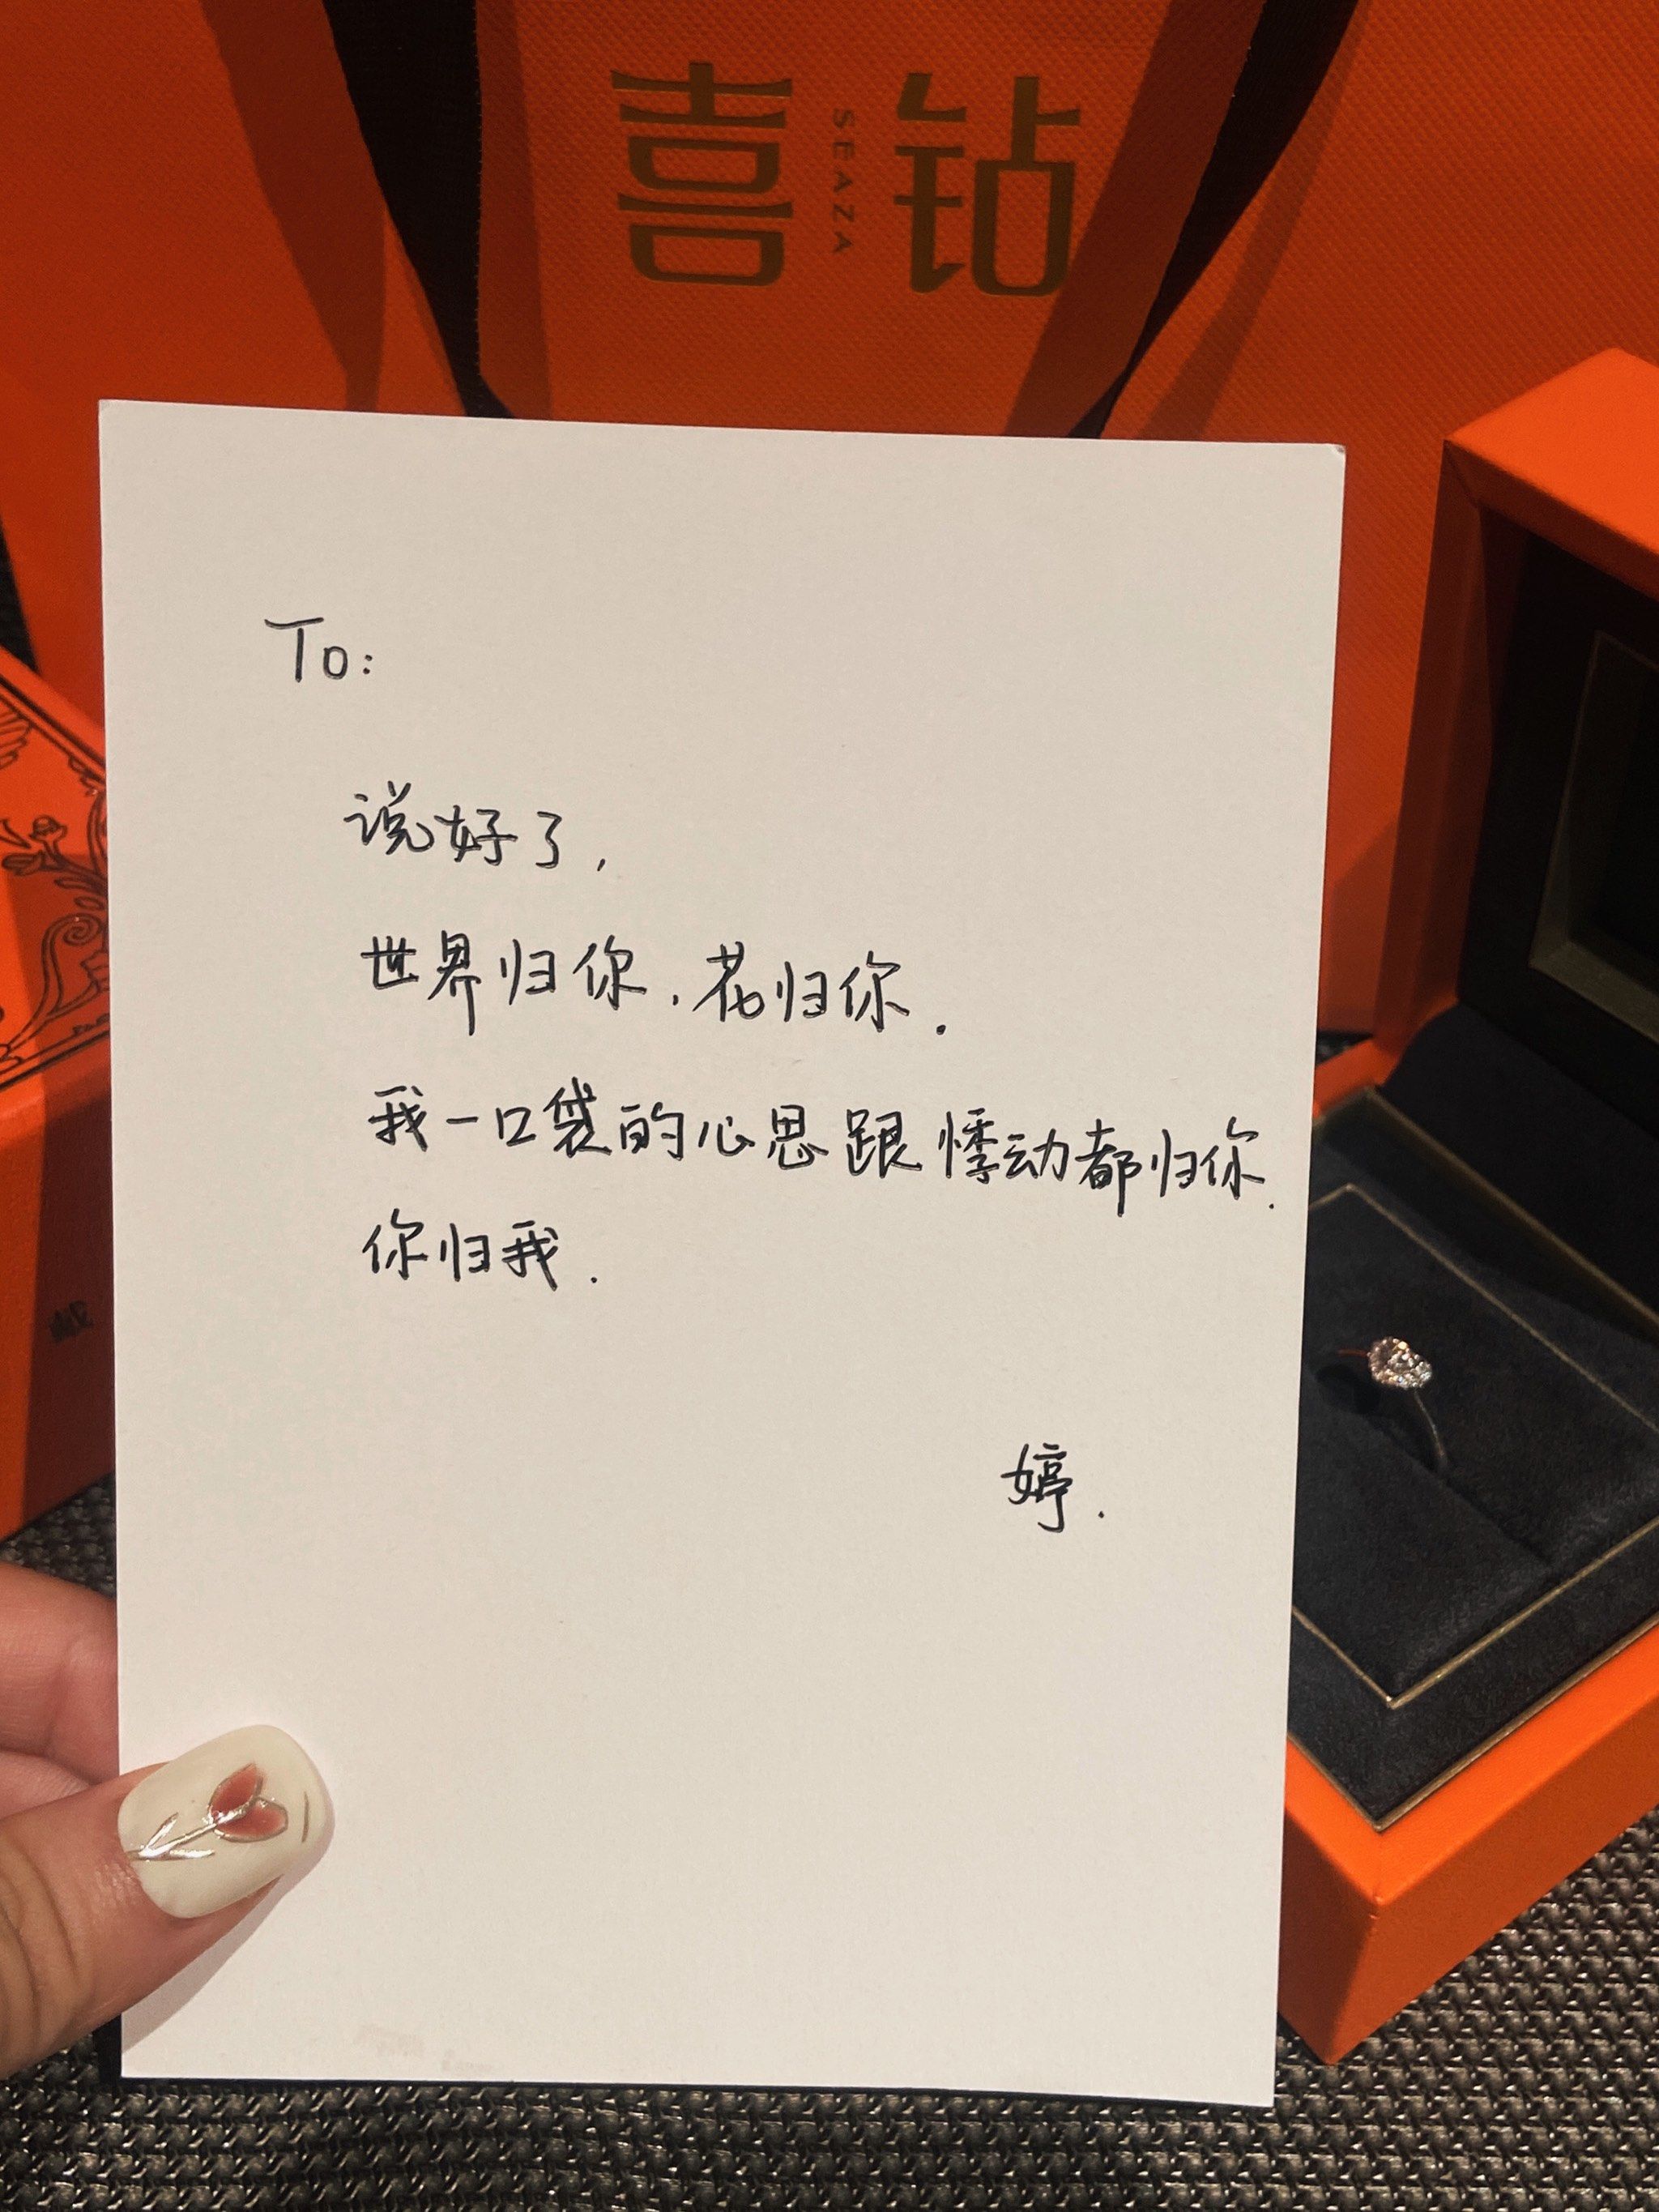 喜钻
SEAZA
To:
说好了,
世界归你,花归你.
我一口袋的心思跟悸动都归你.
你归我.
婷.